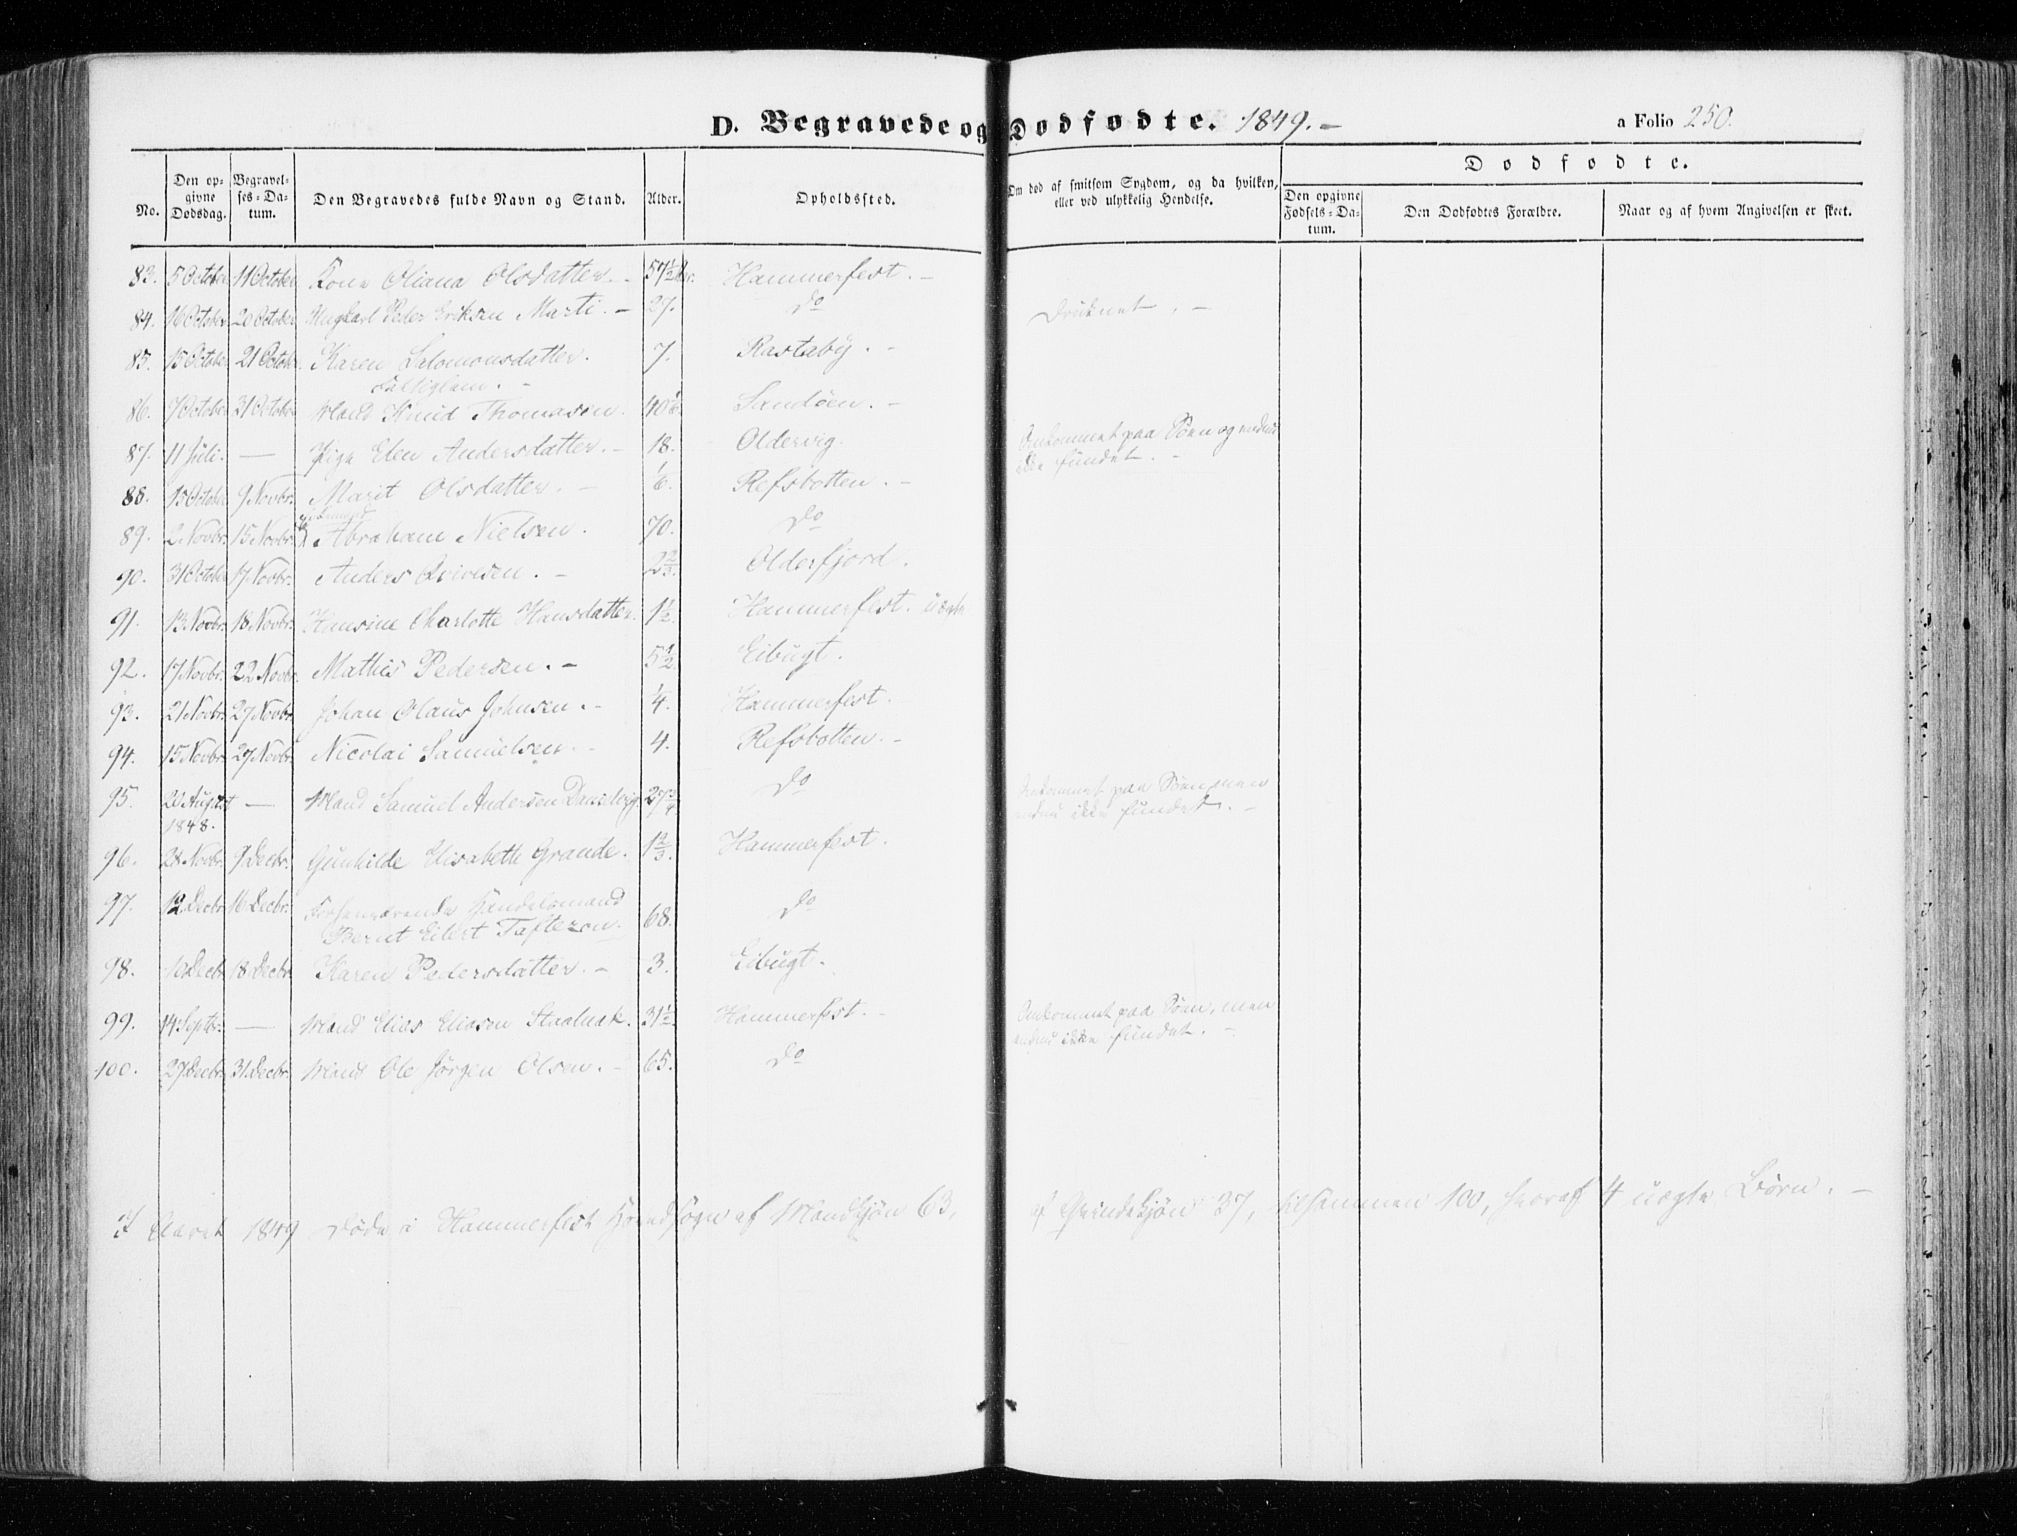 D. Begravede og Dødfødte. 1849. –
a Folio 250.
No.
Den op-
givne
Dødsdag.
Begravel-
ses-Da-
tum.
Den Begravedes fulde Navn og Stand.
Alder.
Opholdssted.
Om død af smitsom Sygdom, og da hvilken,
eller ved ulykkelig Hendelse.
Dødfødte.
Den opgivne
Fødsels-Da-
tum.
Den Dødfødtes Forældre.
Naar og af hvem Angivelsen er skeet.
83. 5 October 11 October Kone Oliana Olsdatter. – 57½ Hammerfest. –
84. 16 October 20 October Ungkarl Peder Eriksen Marti. – 27. Do Druknet. –
85. 15 October 21 October Karen Salomonsdatter. 7. Rastaby. –
86. 7 October 31 October Mand Knud Thomasen. Sandøen. –
87. 11 Juli. — Pige Elen Andersdatter. – 18. Oldervig. Omkommet paa Søen og endnu
ikke fundet. –
88. 15 October 9 Novbr. Marit Olsdatter. – 1/6. Refsbotten. –
89. 2 Novbr. 15 Novbr. Abraham Nielsen. 70. Do
90. 31 October 17 Novbr. Anders Qvivesen. – 2⅔. Olderfjord.
91. 13 Novbr. 18 Novbr. Hansine Charlotte Hansdatter. 1½. Hammerfest. uægte
92. 17 Novbr. 22 Novbr. Mathis Pedersen. – 5½. Eibugt.
93. 21 Novbr. 27 Novbr. Johan Olaus Johnsen. – ¼. Hammerfest.
94. 15 Novbr. 27 Novbr. Nicolai Samuelsen. – 4. Refsbotten. –
95. 20 August — Mand Samuel Andersen Do Omkommet paa Søen, men
1848. endnu ikke fundet. –
96. 28 Novbr. 9 Decbr. Gunhilde Elisabeth Grande. 1⅔. Hammerfest.
97. 12 Decbr. 16 Decbr. Forhenværende Handelsmand
Bernt Eilert Taftezon. 68. Do
98. 10 Decbr. 18 Decbr. Karen Pedersdatter. – 3. Eibugt.
99. 14 Septbr. — Mand Elias Eliasen 31½. Hammerfest. – Omkommet paa Søen, men
endnu ikke fundet. –
100. 27 Decbr. 31 Decbr. Mand Ole Jørgen Olsen. – 65. Do
I Aaret 1849 Døde i Hammerfest af Mandkjøn 63, af Qvindekjøn 37, tilsammen 100, hvoraf 4 uægte Børn. –